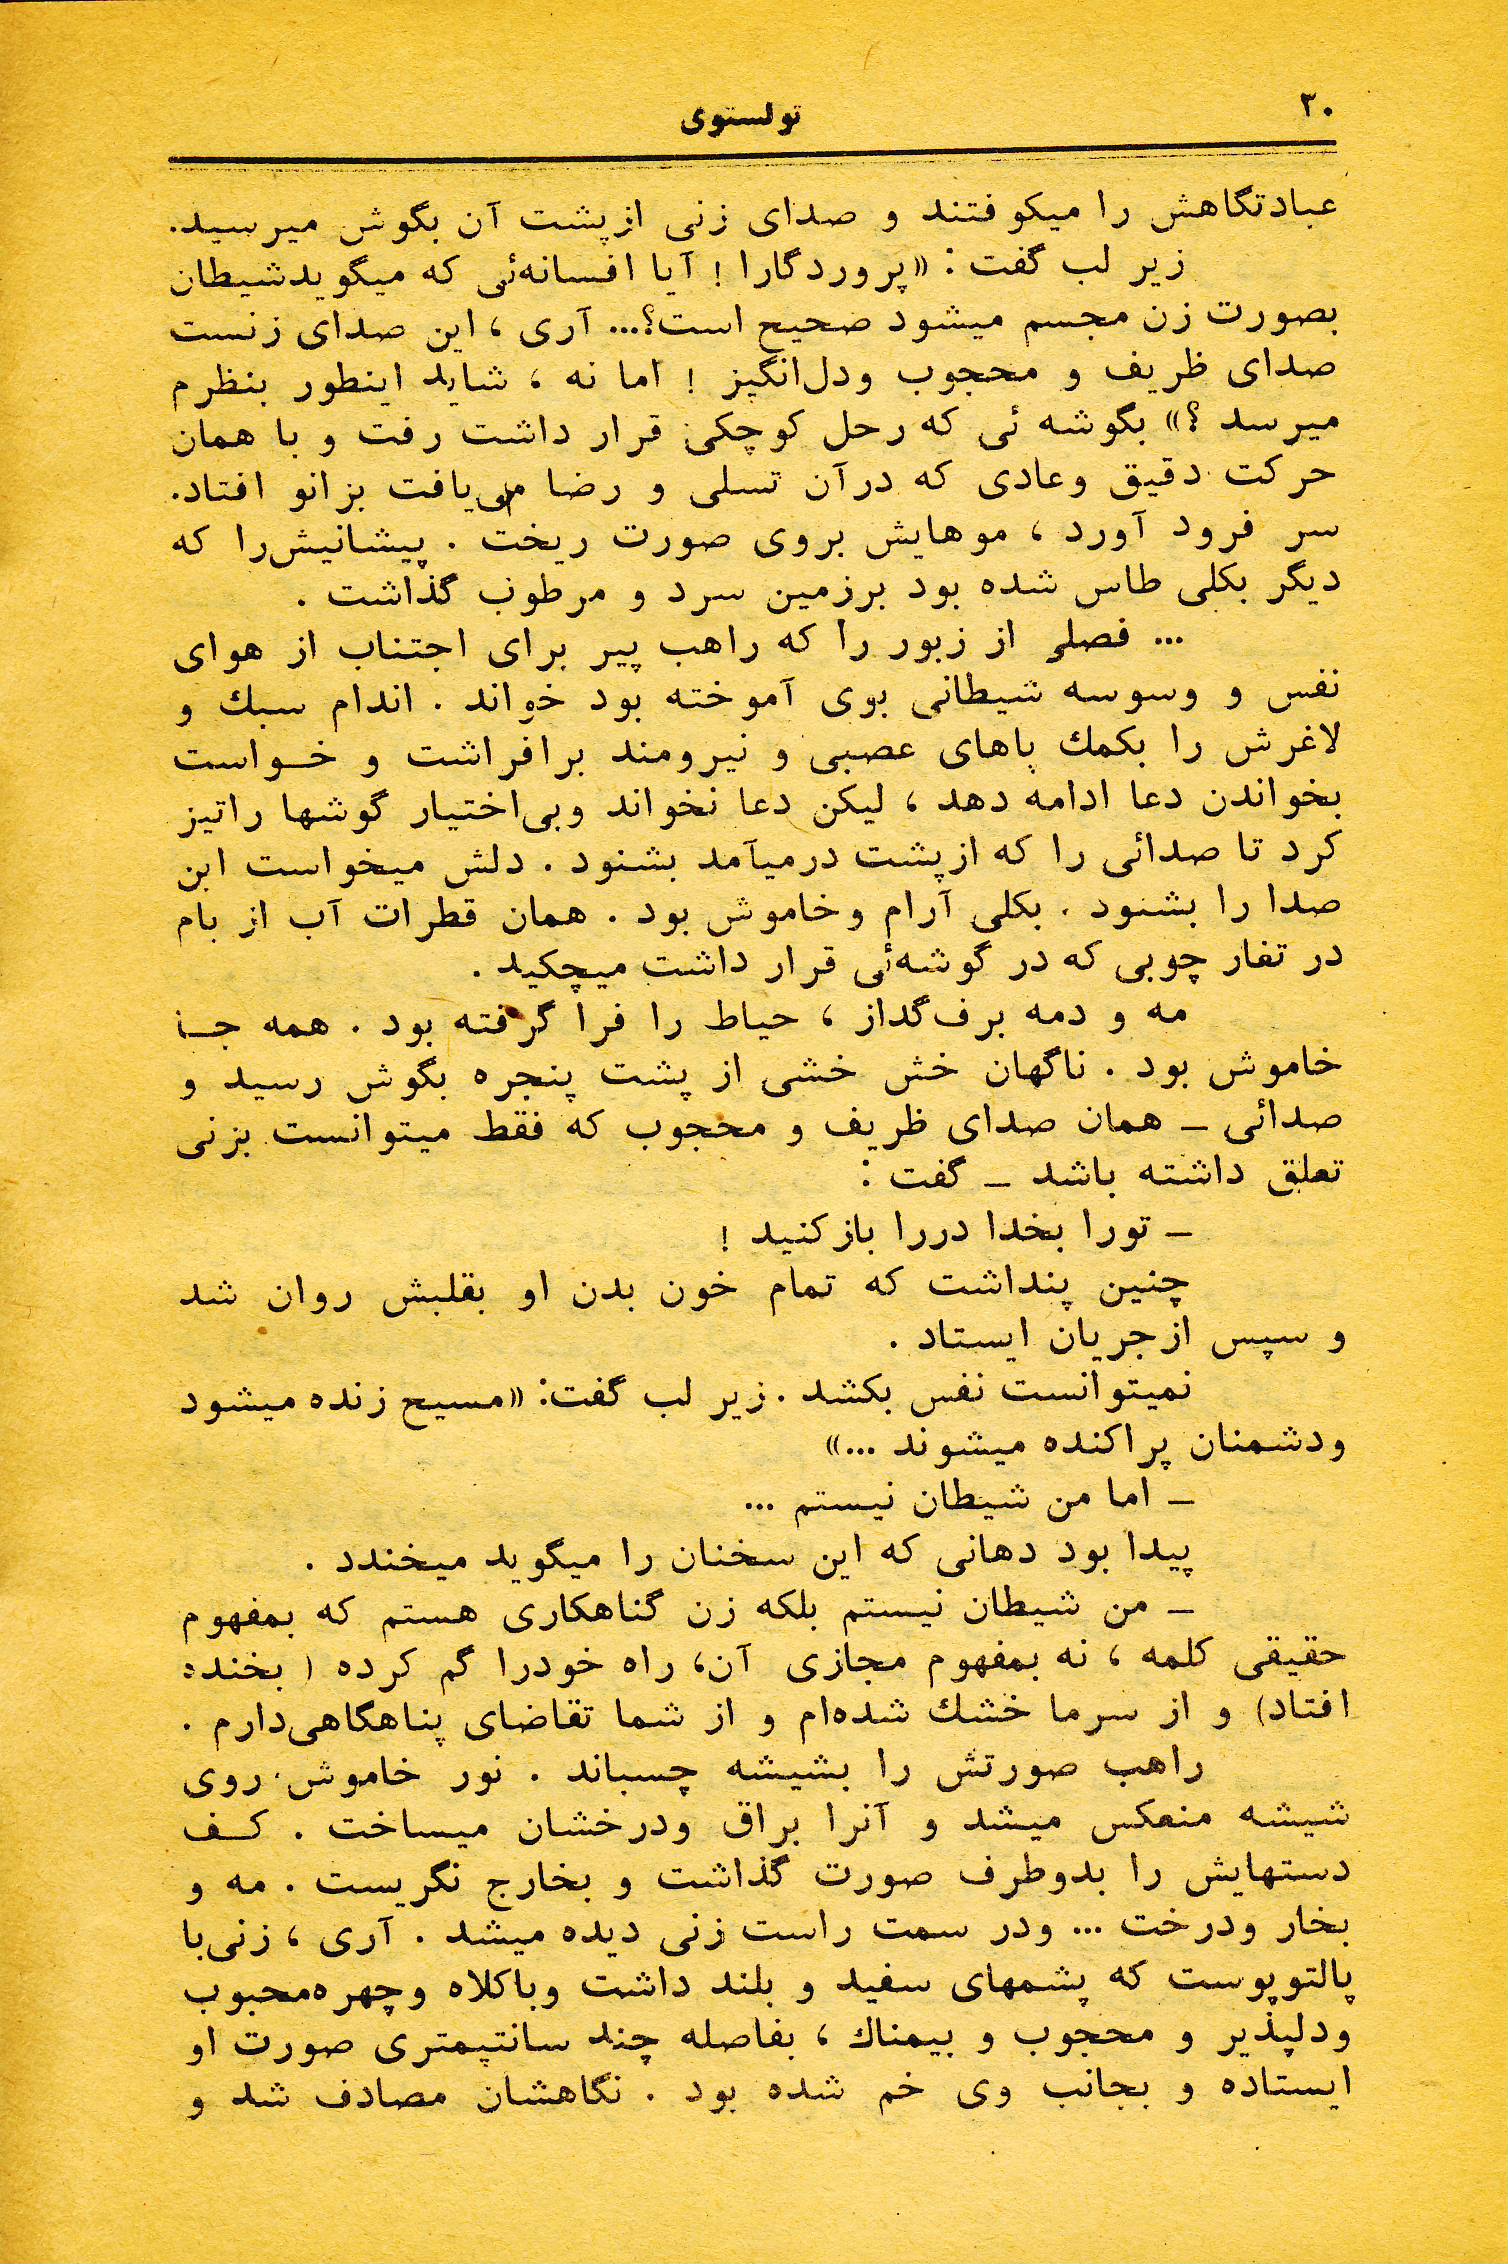 ۳۰
تولستوی
عبادتگاهش را میکوفتند و صدای زنی ازپشت آن بگوش میرسید.
زیر لب گفت : «پروردگارا ! آیا افسانه‌ئی که میگویدشیطان
بصورت زن مجسم میشود صحیح است؟... آری ، این صدای زنست
صدای ظریف و محجوب ودل‌انگیز ! اما نه ، شاید اینطور بنظرم
میرسد ؟» بگوشه ئی که رحل کوچکی قرار داشت رفت و با همان
حرکت دقیق وعادی که درآن تسلی و رضا می‌یافت بزانو افتاد.
سر فرود آورد ، موهایش بروی صورت ریخت . پیشانیش‌را که
دیگر بکلی طاس شده بود برزمین سرد و مرطوب گذاشت .
... فصلی از زبور را که راهب پیر برای اجتناب از هوای
نفس و وسوسه شیطانی بوی آموخته بود خواند . اندام سبك و
لاغرش را بکمك پاهای عصبی و نیرومند برافراشت و خـواست
بخواندن دعا ادامه دهد ، لیکن دعا نخواند وبی‌اختیار گوشها راتیز
کرد تا صدائی را که ازپشت درمیآمد بشنود . دلش میخواست این
صدا را بشنود . بکلی آرام وخاموش بود . همان قطرات آب از بام
در تغار چوبی که در گوشه‌ئی قرار داشت میچکید .
مه و دمه برف‌گداز ، حیاط را فرا گرفته بود . همه جـا
خاموش بود . ناگهان خش خشی از پشت پنجره بگوش رسید و
صدائی ـ همان صدای ظریف و محجوب که فقط میتوانست بزنی
تعلق داشته باشد ـ گفت :
ـ تورا بخدا دررا بازکنید !
چنین پنداشت که تمام خون بدن او بقلبش روان شد
و سپس ازجریان ایستاد .
نمیتوانست نفس بکشد . زیر لب گفت: «مسیح زنده میشود
ودشمنان پراکنده میشوند ...»
ـ اما من شیطان نیستم ...
پیدا بود دهانی که این سخنان را میگوید میخندد .
ـ من شیطان نیستم بلکه زن گناهکاری هستم که بمفهوم
حقیقی کلمه ، نه بمفهوم مجازی آن، راه خودرا گم کرده ( بخنده
افتاد) و از سرما خشك شده‌ام و از شما تقاضای پناهگاهی‌دارم .
راهب صورتش را بشیشه چسباند . نور خاموش روی
شیشه منعکس میشد و آنرا براق ودرخشان میساخت . کـف
دستهایش را بدوطرف صورت گذاشت و بخارج نگریست . مه و
بخار ودرخت ... ودر سمت راست زنی دیده میشد . آری ، زنی‌با
پالتوپوست که پشمهای سفید و بلند داشت وباکلاه وچهره‌محبوب
ودلپذیر و محجوب و بیمناك ، بفاصله چند سانتیمتری صورت او
ایستاده و بجانب وی خم شده بود . نگاهشان مصادف شد و